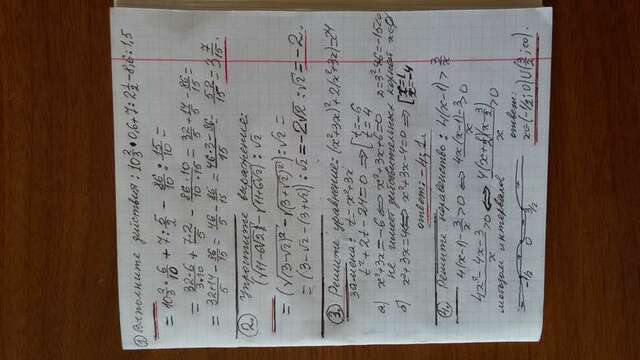 ① Выполните действия: 10 2/3 • 0,6 + 7 : 2 1/2 − 8,6 : 1,5
= 10 2/3 • 6/10 + 7 : 5/2 − 86/10 : 15/10 =
= 32·6/3·10 + 7·2/5 − 86·10/10·15 = 32/5 + 14/5 − 86/15 =
= 32+14/5 − 86/15 = 46/5 − 86/15 = 46·3−86/15 = 52/15 = 3 7/15.
② Упростите выражение:
(√11−6√2 − √11+6√2) : √2
= (√(3−√2)² − √(3+√2)²) : √2 =
= (3−√2 − (3+√2)) : √2 = −2√2 : √2 = −2.
③ Решите уравнение: (x²+3x)²+2(x²+3x)=24
замена: t = x²+3x
t²+2t−24=0 ⇒ [t=−6 t=4
а) x²+3x=−6 ⇔ x²+3x+6=0 D=3²−4·6=−15<0
не имеет действительных корней
б) x²+3x=4 ⇔ x²+3x−4=0 ⇒ [x=1 x=−4
ответ: −4; 1.
④ Решите неравенство: 4(x−1) > 3/x
4(x−1) − 3/x > 0 ⇔ 4x(x−1)−3/x > 0
4x²−4x−3/x > 0 ⇔ 4(x+1/2)(x−3/2)/x > 0
методом интервалов
−1/2 0 3/2
ответ:
x∈(−1/2; 0)∪(3/2; ∞).